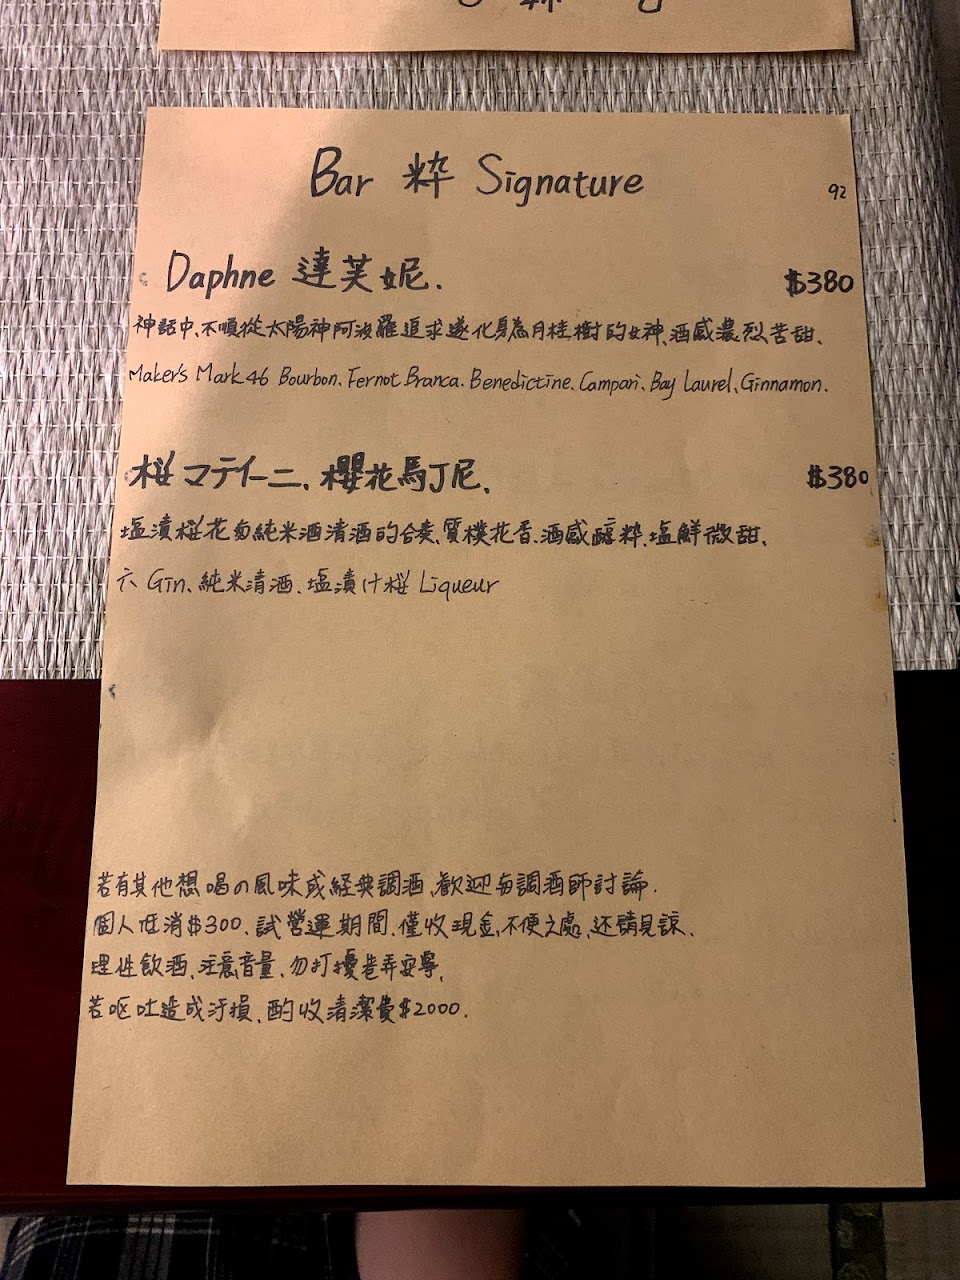 Bar 粋 Signature
92
Daphne 達芙妮. $380
神話中、不順從太陽神阿波羅追求遂化身為月桂樹的女神、酒感濃烈苦甜、
Maker's Mark 46 Bourbon、Fernot Branca、Benedictine、Campari、Bay Laurel、Ginnamon.
桜マティーニ、櫻花馬丁尼、 $380
塩漬桜花与純米酒清酒的合奏、質樸花香、酒感醇粹、塩鮮微甜、
六 Gin、純米清酒、塩漬け桜 Liqueur
若有其他想喝の風味或経典調酒、歡迎与調酒師討論.
個人低消$300、試營運期間、僅收現金、不便之處、还請見諒、
理性飲酒、注意音量、勿打擾巷弄安寧、
若呕吐造成汙損、酌收清潔費$2000.